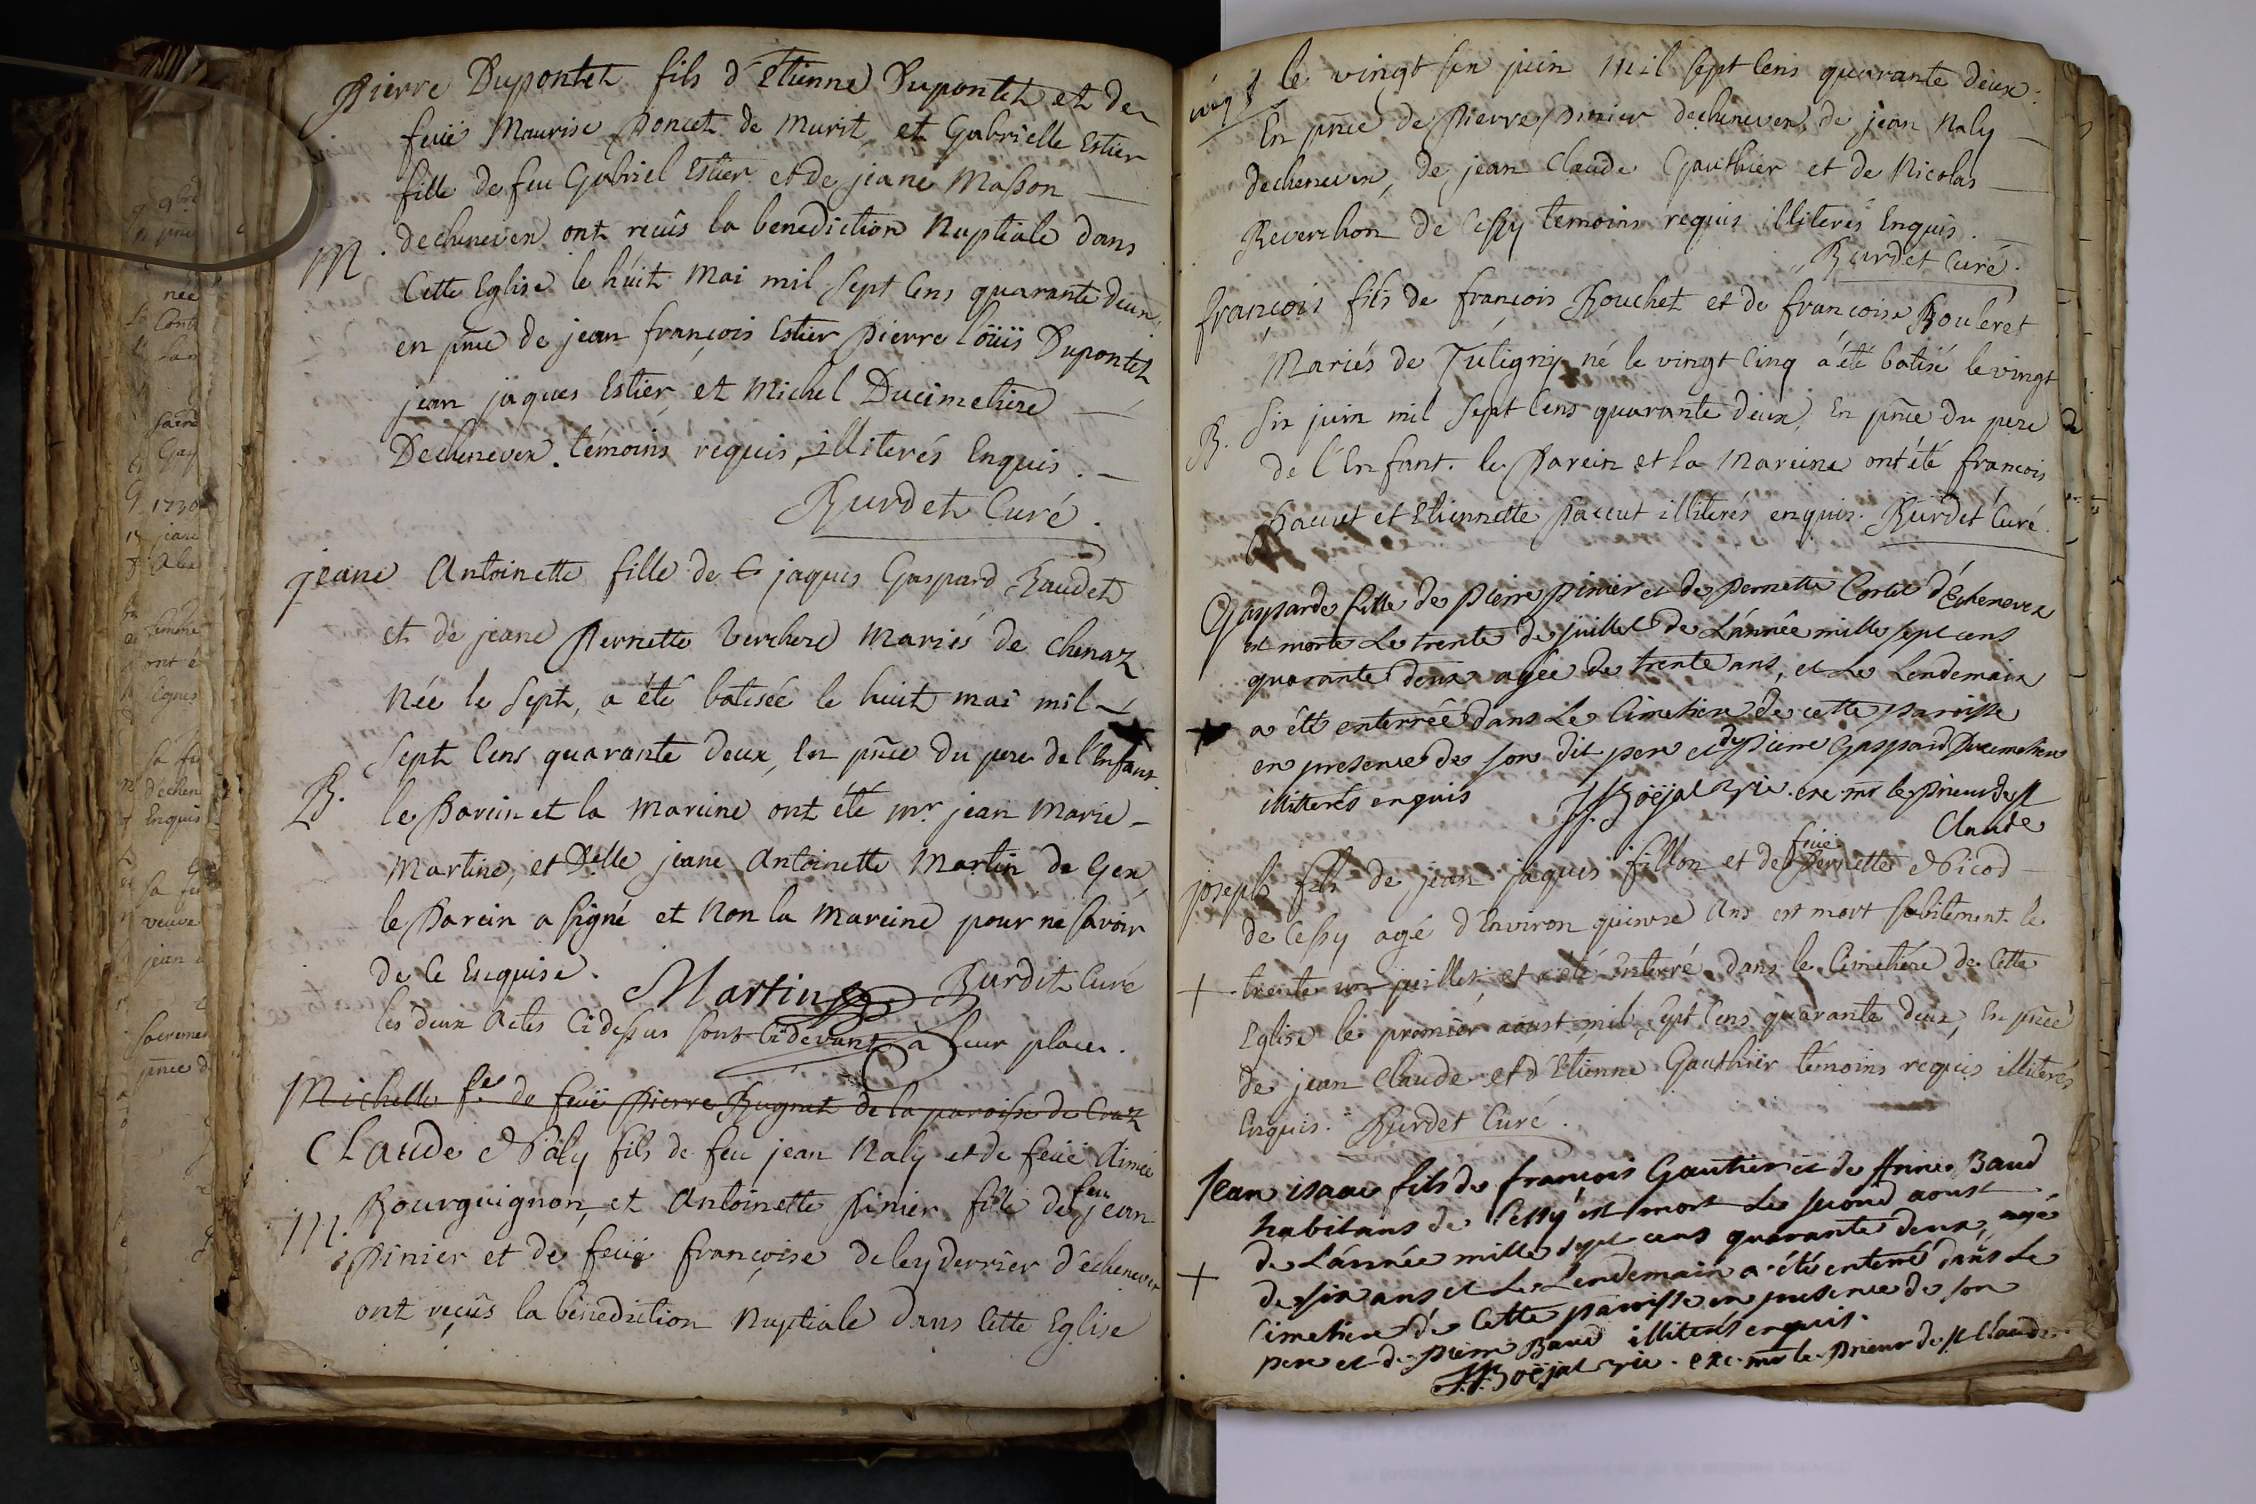 Pierre Dupontet fils d'Etienne Dupontet et de
feuë Maurise Poncet de Murit, et Gabrielle Estier
fille de feu Gabriel Estier et de jeane Masson
M. dechenevex ont recûs la benediction Nuptiale dans
Cette Eglise le húit Mai mil sept Cens quarante deux.
en pnce de jean françois Estier pierre loüis Dupontet
jean jaques Estier et Michel Ducimetiere
Dechenevex. témoins requis, illiterés Enquis.
Burdet Curé.
jeane Antoinette fille de jaques Gaspard Baudet
et de jeane Pernette Verchere Mariés de Chenaz
Née le Sept, a été batisée le huit mai mil
Sept Cens quarante deux, En pnce du pere de l'Enfant.
B. le Parein et la mareine ont été mr. jean Marie
Martine, et Delle jeane Antoinette Martin de Gex,
le Parein a signé et Non la mareine pour ne savoir
de Ce Enquise. Martin Burdet Curé
les deux Actes Cidessus sont Cidevant à leur place.
Michelle fe de feüe Pierre Bugnet de la paroisse de Craz
Claude Naly fils de feu jean Naly et de feuë Aimée
Bourguignon, et Antoinette Pinier fille de feu jean
M. Pinier et de feüe françoise deleyderrier d'échenevex
ont reçûs la bénediction Nuptiale dans Cette Eglise
le vingt six juin Mil sept Cens quarante deux.
En pnce de Pierre Pinier dechenevex, de jean Naly
dechenevex, de jean Claude Gauthier et de Nicolas
Reverchon de Cessy temoins requis illiterés Enquis.
Burdet Curé.
françois fils de françois Bouchet et de françoise Bouleret
Mariés de Tutigny né le vingt Cinq a été batisé le vingt
B. Six juin mil Sept Cens quarante deux, En pnce du pere
de l'Enfant. le Parein et la Mareine ont été françois
Paccut et Etiennette Paccut illiterés enquis. Burdet Curé.
Gasparde fille de Pierre Pinier et de Pernette Cortet d'Echenevex
est morte Le trente de juillet de L'année mille sept cens
quarante deux agée de trente ans, et Le Lendemain
a été enterrée dans Le Cimetiere de cette paroisse
en presence de son dit pere et de pierre Gaspard Ducimetiere
illitterés enquis J.J. Boëjat vic. ex mr le prieur de st
Claude
joseph fils de jean jaques fillon et de feüe Pernette Nicod
de Cessy agé d'Environ quinze Ans est mort subitement le
+ trente un juillet, et a été Enterré dans le Cimetiére de Cette
Eglise le premier aoust mil sept Cens quarante deux, En pnce
de jean Claude et d'Etienne Gauthier témoins requis illiterés
Enquis. Burdet Curé.
Jean isaac fils de françois Gautier et de Anne Baud
habitans de Cessy est mort Le second aoust
de L'année mille sept cens quarante deux, agé
+ de six ans et Le Lendemain a été enterré dans Le
Cimetiere de Cette paroisse en presence de son
pere et de pierre Baud illiterés enquis.
J.J. Boëjat vic. ex mr le Prieur de st Claude.